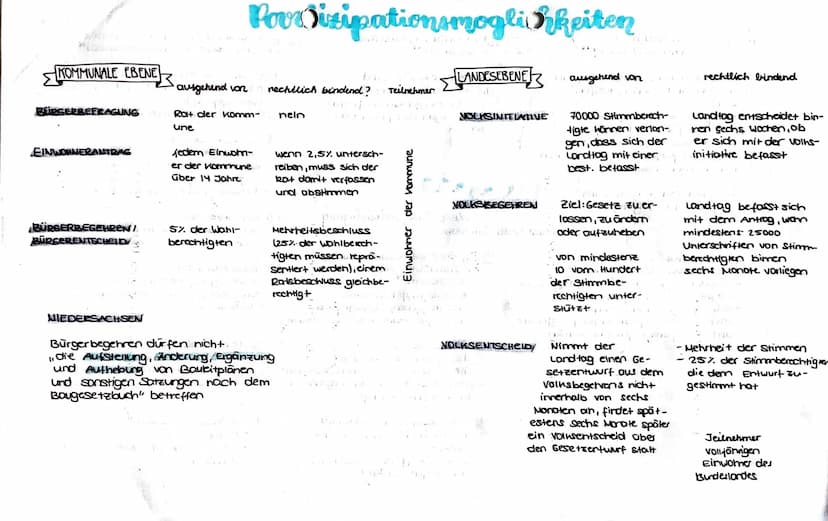 Partizipationsmöglichkeiten
KOMMUNALE EBENE
ausgehend von
rechtlich bindend?
Teilnehmer
BÜRGERBEFRAGUNG
Rat der Komm-
une
nein
EINWOHNERANTRAG
Jedem Einwohn-
er der Kommune
über 14 Jahre
wenn 2,5% untersch-
reiben, muss sich der
Rat damit verfassen
und abstimmen
BÜRGERBEGEHREN/
BÜRGERENTSCHEID
5% der Wahl-
berechtigten
Mehrheitsbeschluss
(25% der Wahlberech-
tigten müssen reprä-
sentiert werden), einem
Ratsbeschluss gleichbe-
rechtigt
Einwohner der Kommune
NIEDERSACHSEN
Bürgerbegehren dürfen nicht
„die Aufstellung, Änderung, Ergänzung
und Aufhebung von Bauleitplänen
und sonstigen Satzungen nach dem
Baugesetzbuch“ betreffen
LANDESEBENE
ausgehend von
rechtlich bindend
VOLKSINITIATIVE
70000 Stimmberech-
tigte können verlan-
gen, dass sich der
Landtag mit einer
best. befasst
Landtag entscheidet bin-
nen sechs Wochen, ob
er sich mit der Volks-
initiative befasst
VOLKSBEGEHREN
Ziel: Gesetz zu er-
lassen, zu ändern
oder aufzuheben
von mindestens
10 vom Hundert
der Stimmbe-
rechtigten unter-
stützt
Landtag befasst sich
mit dem Antrag, wenn
mindestens 25000
Unterschriften von Stimm-
berechtigten binnen
sechs Monate vorliegen
VOLKSENTSCHEID
Nimmt der
Landtag einen Ge-
setzentwurf aus dem
Volksbegehrens nicht
innerhalb von sechs
Monaten an, findet spät-
estens sechs Monate später
ein Volksentscheid über
den Gesetzentwurf statt
- Mehrheit der Stimmen
- 25% der Stimmberechtigten
die dem Entwurf zu-
gestimmt hat
Teilnehmer
volljährigen
Einwohner des
Bundeslandes